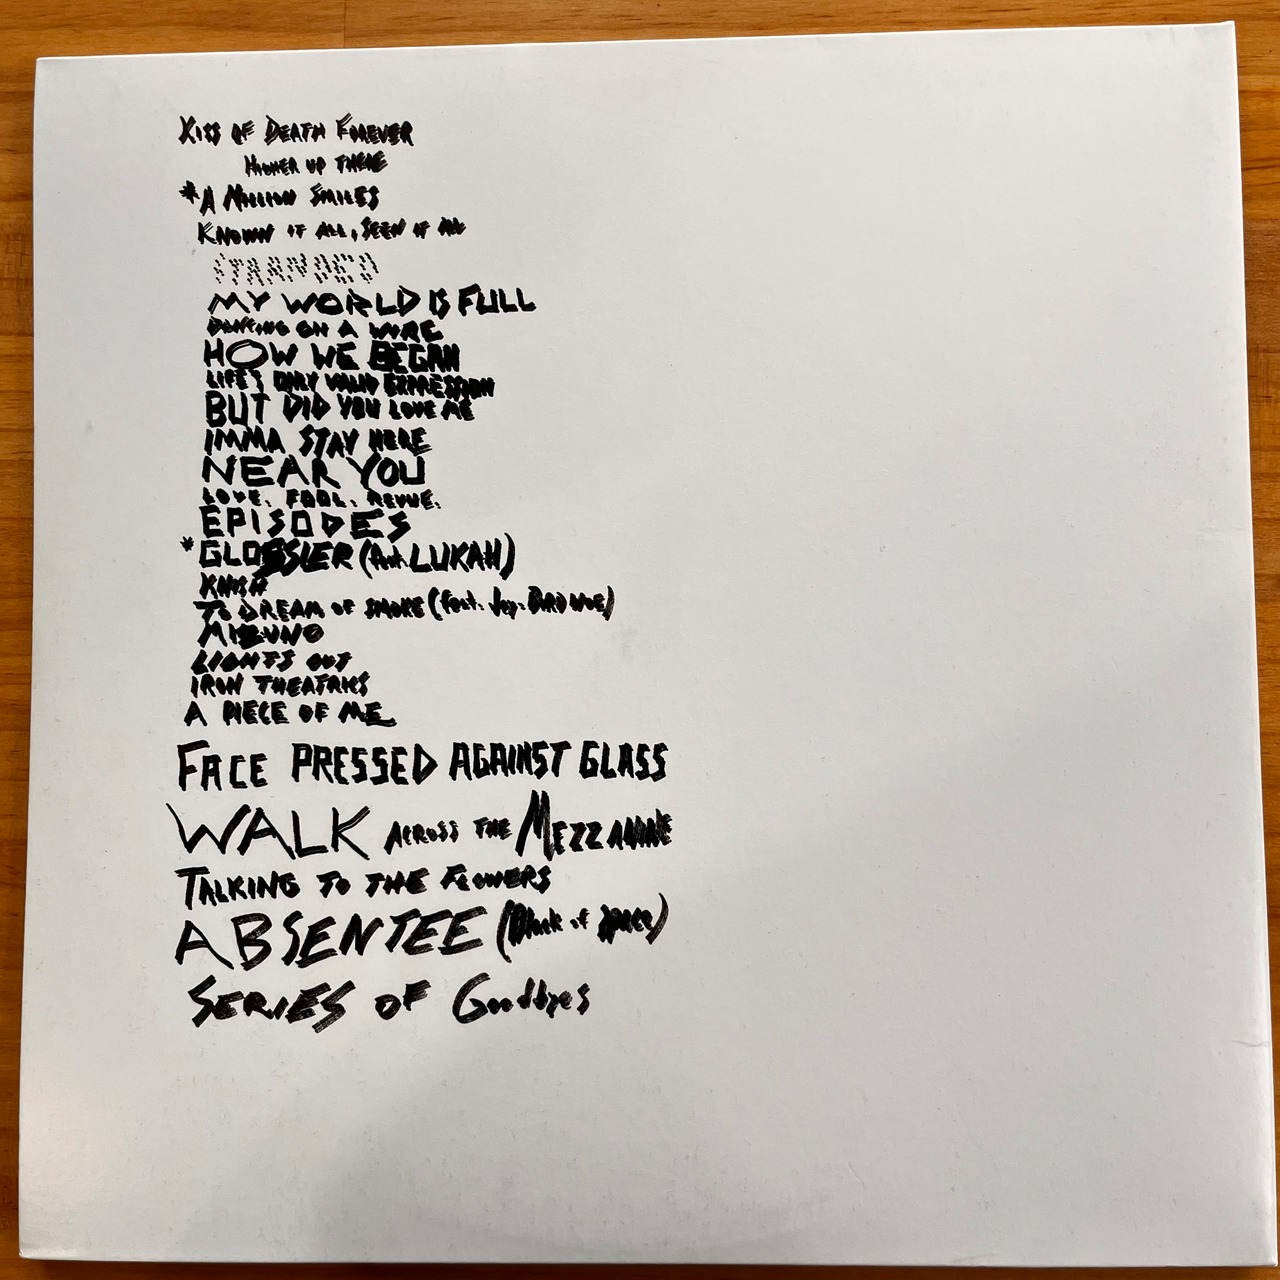 Kiss of Death Forever
Higher up there
*A Million Smiles
Known it all, Seen it all
STRANDED
MY WORLD IS FULL
DANCING ON A WIRE
HOW WE BEGAN
LIFE'S ONLY VALID EXPRESSION
BUT DID YOU LOVE ME
IMMA STAY HERE
NEAR YOU
LOVE. FOOL. REVUE.
EPISODES
*GLOSSIER (feat. LUKAH)
TO DREAM OF SMOKE (feat. Jay. BIRD
MIZUNO
LIGHTS OUT
IRON THEATRICS
A PIECE OF ME
FACE PRESSED AGAINST GLASS
WALK ACROSS THE MEZZANINE
TALKING TO THE FLOWERS
ABSENTEE (Block of Space)
SERIES OF Goodbyes